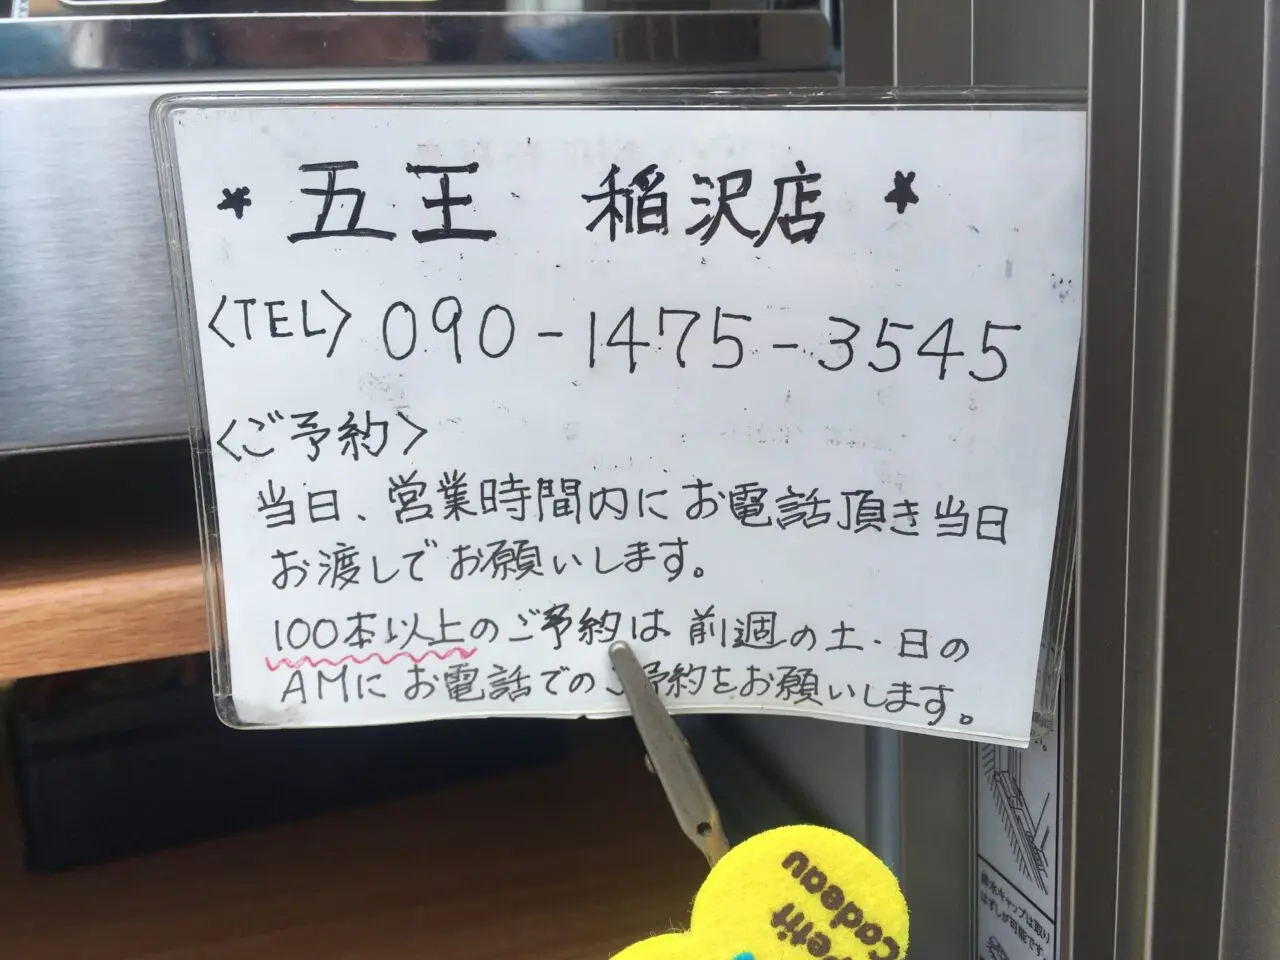 * 五王 稲沢店 *
<TEL> 090-1475-3545
<ご予約>
当日、営業時間内にお電話頂き当日
お渡しでお願いします。
100本以上のご予約は 前週の土・日の
AMに お電話でのご予約をお願いします。
Petit
Cadeau